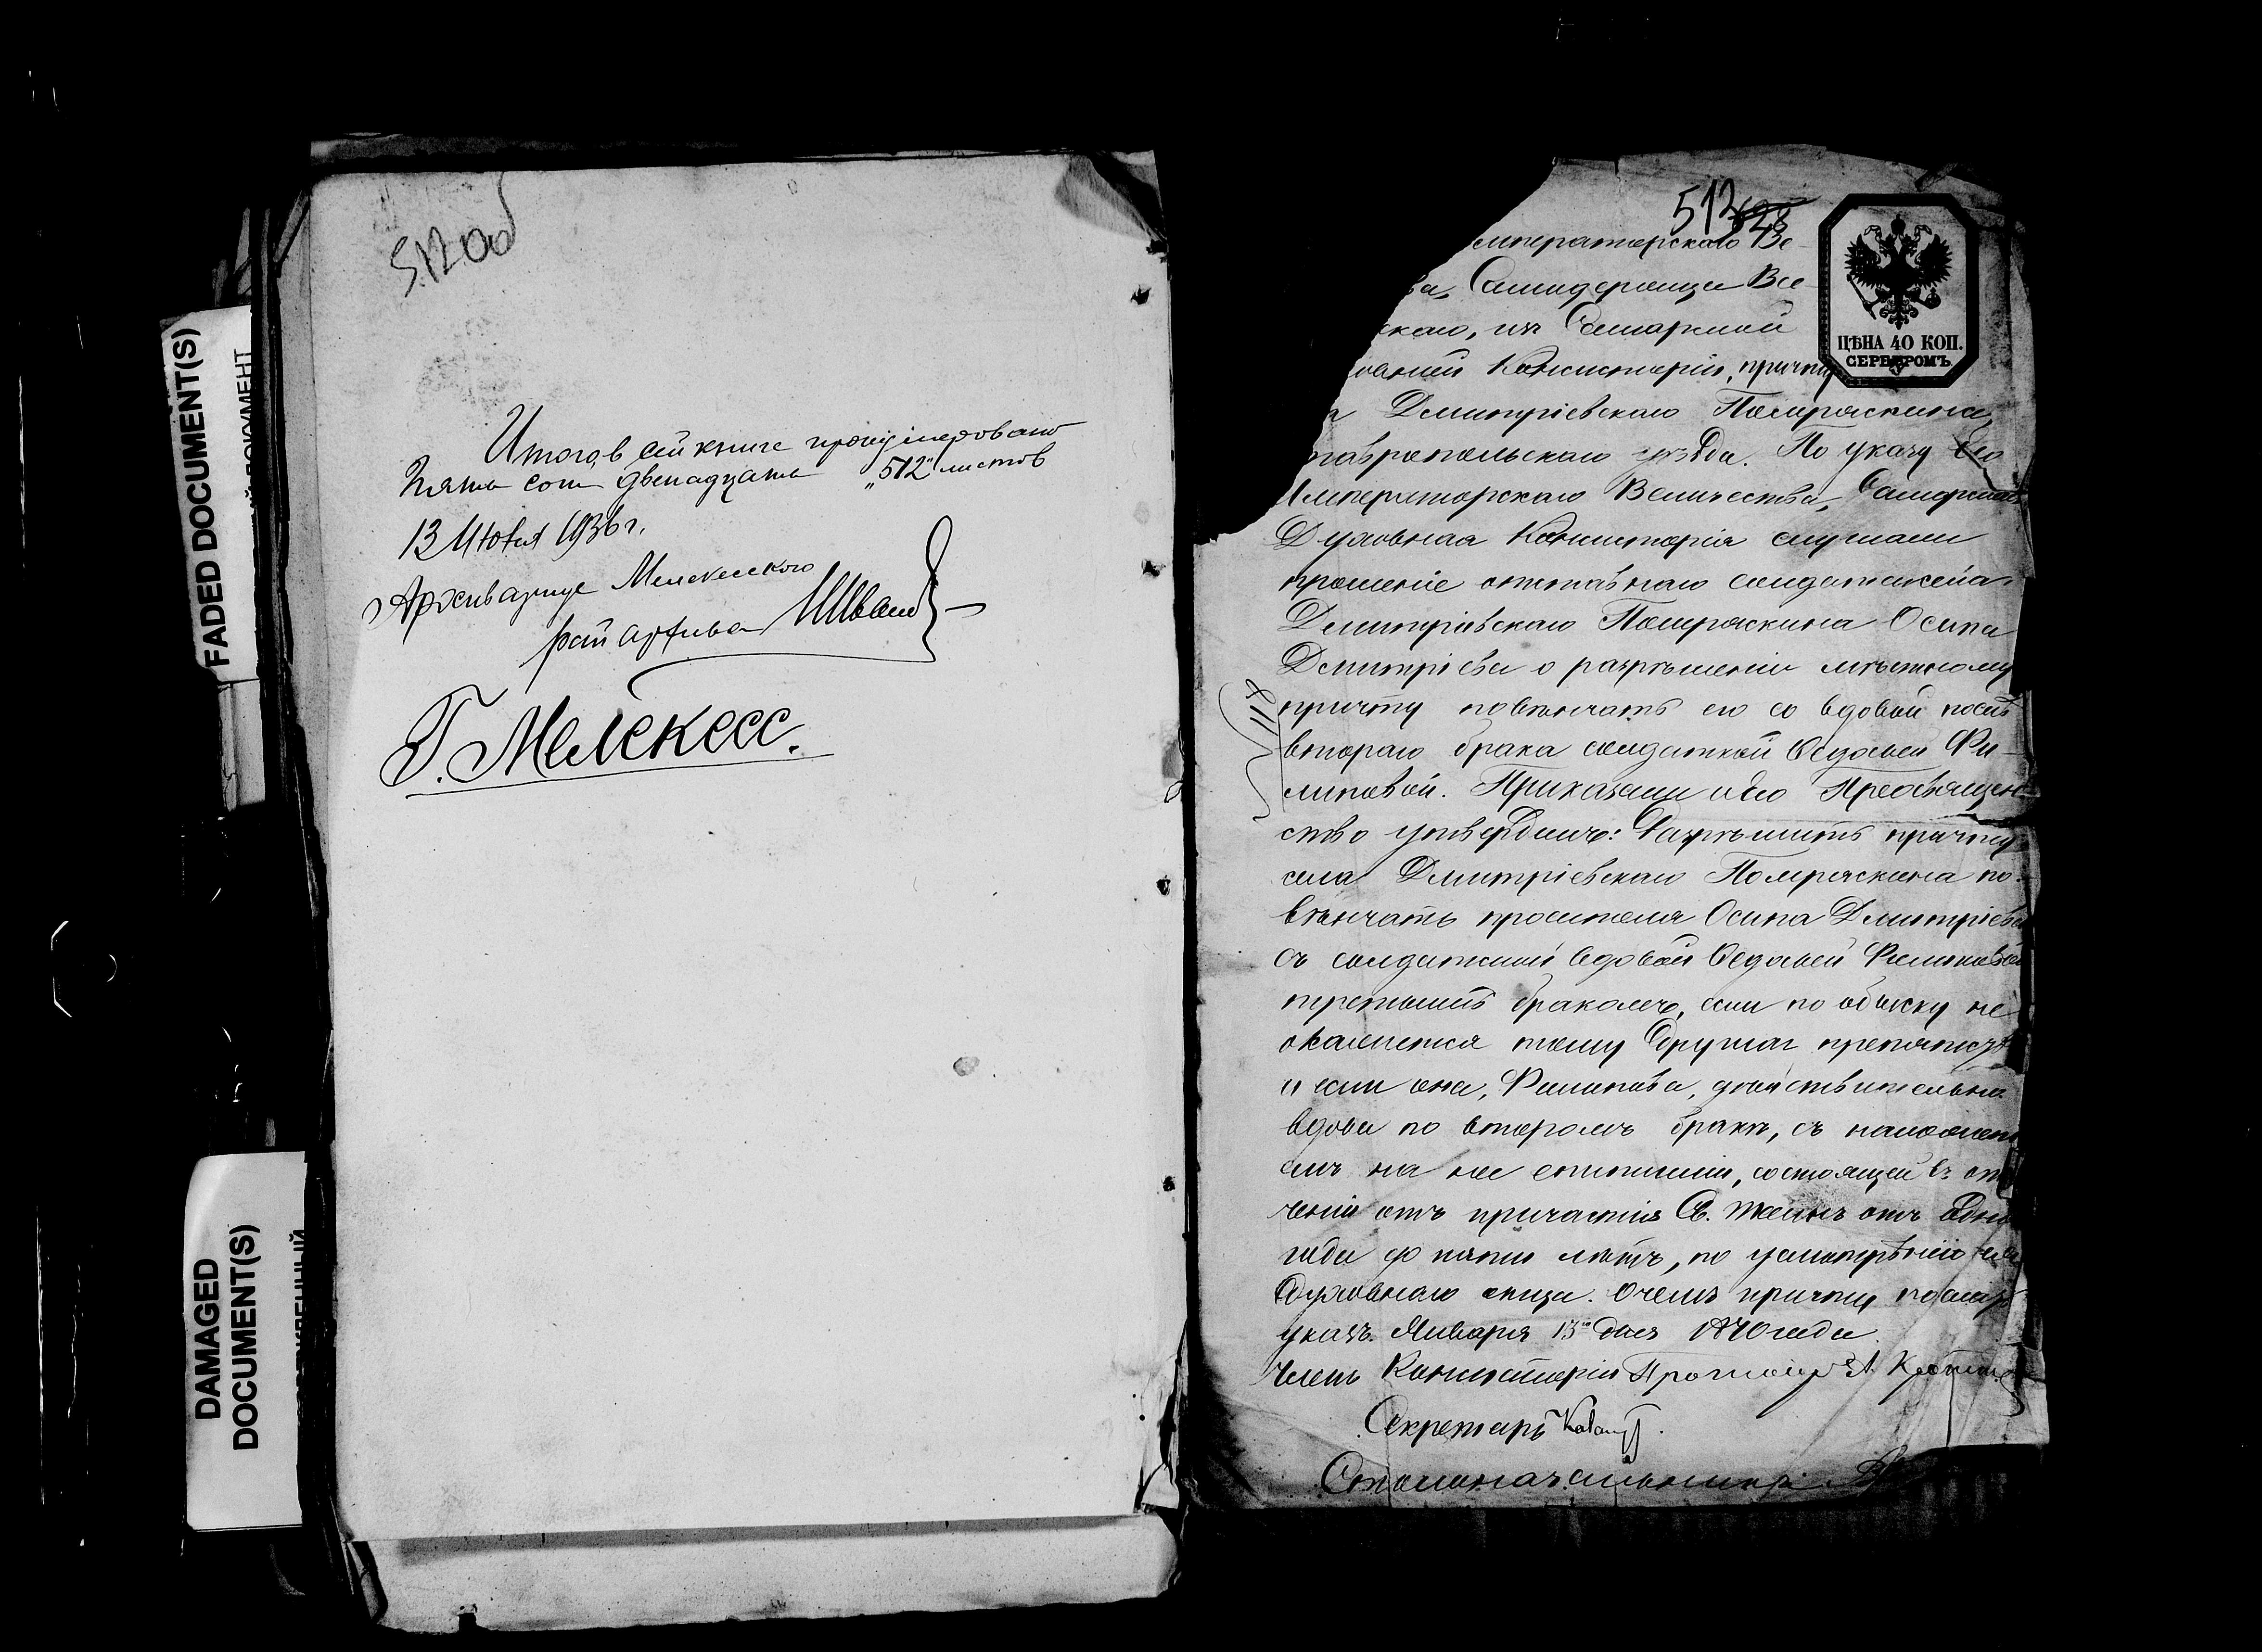 FADED DOCUMENT(S)
DAMAGED
DOCUMENT(S)
512 об
Итого, в сей книге пронумеровано
Пять сот двенадцать „512" листов
13 Июня 1936 г.
Архивариус Мелекесского
рай архива
Г. Мелекесс.
513
ЦѢНА 40 КОП.
СЕРЕБРОМЪ
мператорскаго Ве-
ва, Самодержца Все-
скаго, изъ Самарской
овной Консисторіи, причту
а Дмитріевскаго Помряскина,
тавропольскаго уѣзда. По указу Его
Императорскаго Величества, Самарская
Духовная Консисторія слушали
прошеніе отставнаго солдата села
Дмитріевскаго Помряскина Осипа
Дмитріева о разрѣшеніи мѣстному
причту повѣнчать его со вдовой послѣ
втораго брака солдаткой Ѳедосьей Фи-
липовой. Приказали и Его Преосвящен-
ство утвердилъ: Разрѣшить причту
села Дмитріевскаго Помряскина по-
вѣнчать просителя Осипа Дмитріева
съ солдатской вдовой Ѳедосьей Филиповой
третьимъ бракомъ, если по обыску не
окажется тому другихъ препятств
и если она, Филипова, дѣйствительно
вдова по второмъ бракѣ, съ наложені
емъ на нее епитиміи, состоящей въ отлу
ченіи отъ причастія Св. Таинъ отъ одного
года до пяти лѣтъ, по усмотрѣнію ея
духовнаго отца. О чемъ причту послать
указъ. Января 13 дня 1870 года.
Членъ Консисторіи Протоіерей А.
Секретарь
Столоначальникъ